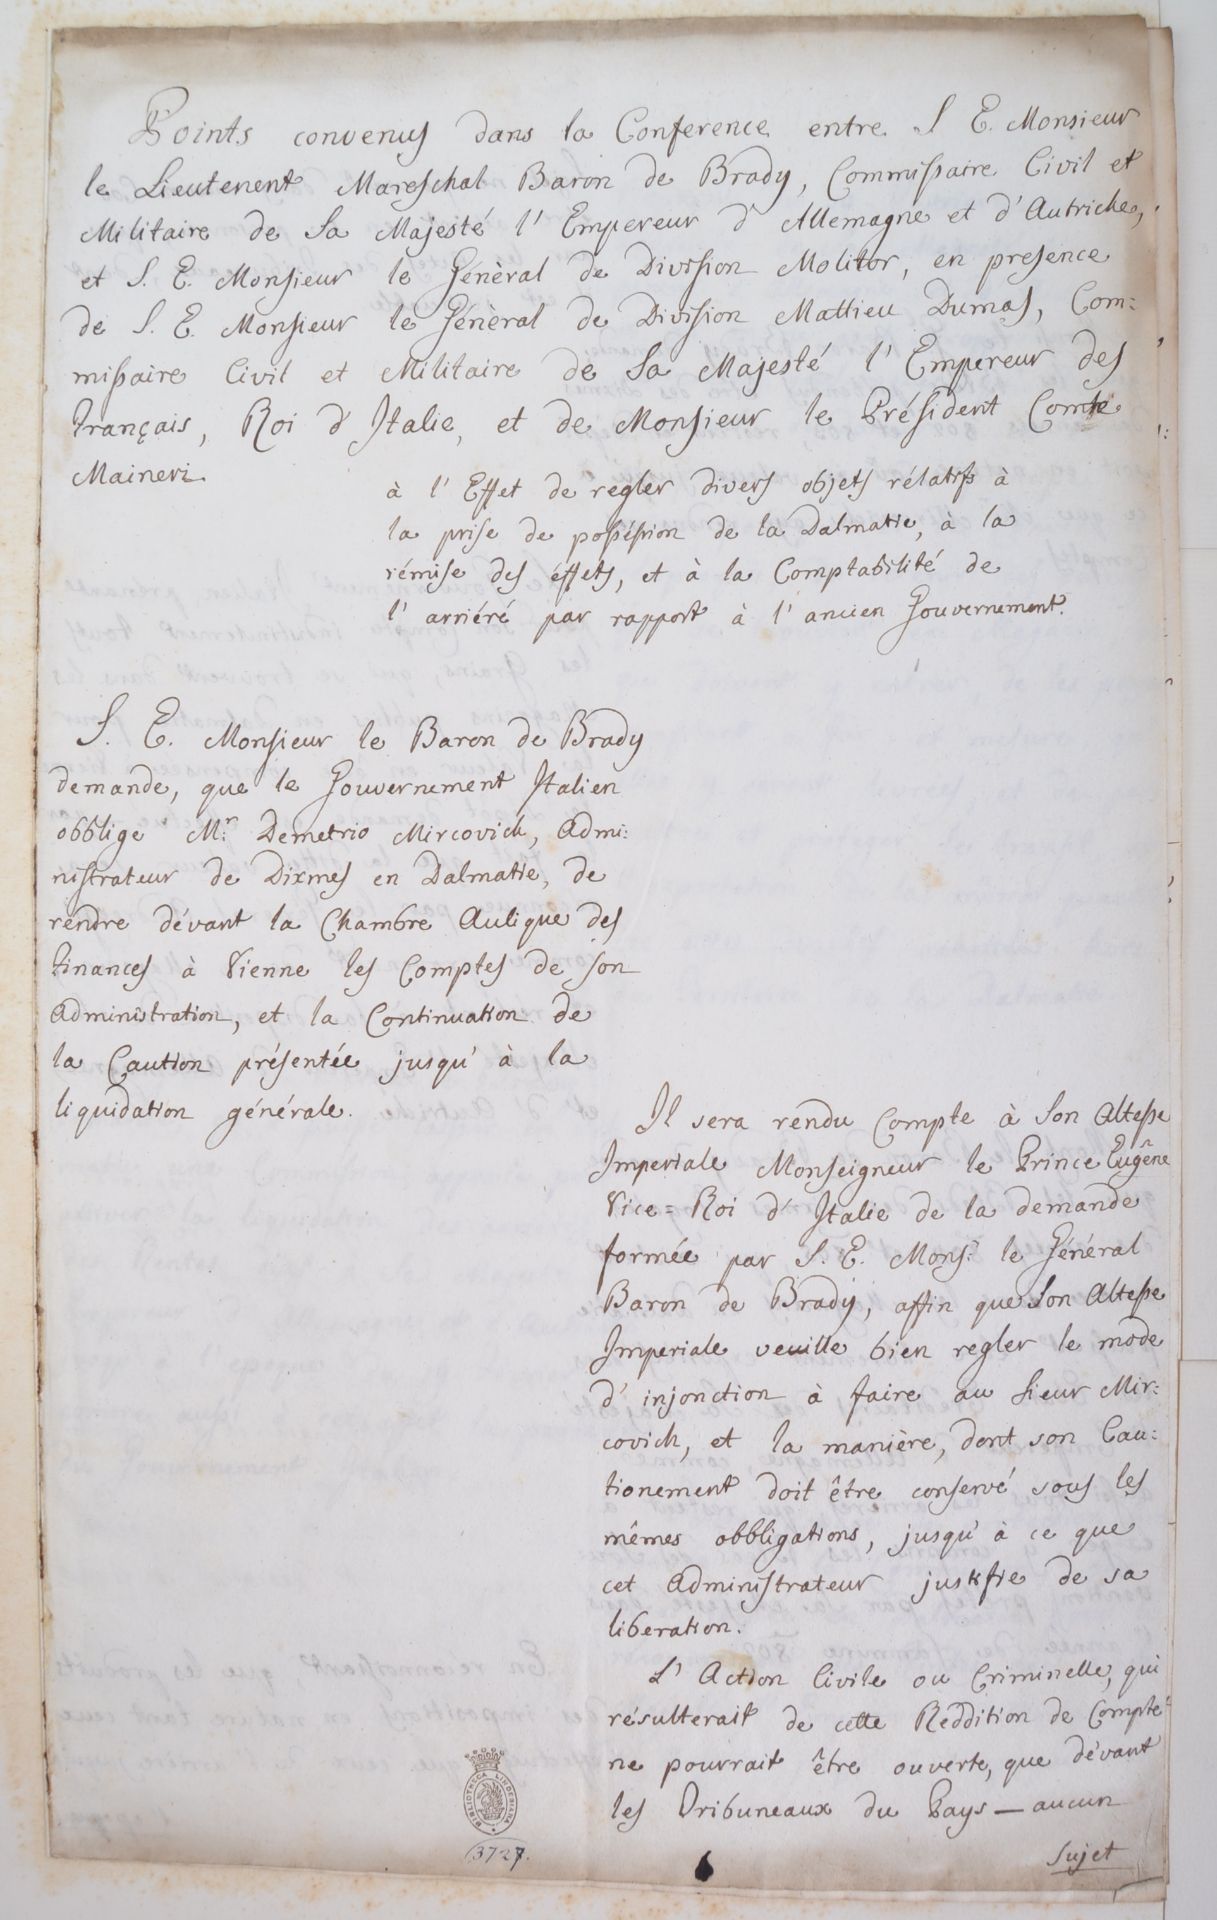 Points convenus dans la Conference entre S. E. Monsieur
le Lieutenent Mareschal Baron de Brady, Commissaire Civil et
Militaire de Sa Majesté l'Empereur d'Allemagne et d'Autriche,
et S. E. Monsieur le Général de Division Molitor, en presence
de S. E. Monsieur le Général de Division Mattieu Dumas, Com=
missaire Civil et Militaire de Sa Majesté l'Empereur des
Français, Roi d'Italie, et de Monsieur le Président Comte
Maineri
à l'Effet de regler divers objets rélatifs à
la prise de posséssion de la Dalmatie, à la
rémise des éffets, et à la Comptabilité de
l'arriéré par rapport à l'ancien Gouvernement.
S. E. Monsieur le Baron de Brady
demande, que le Gouvernement Italien
obblige Mr. Demetrio Mircovich, Admi=
nistrateur de Dixmes en Dalmatie, de
rendre dévant la Chambre Aulique des
Finances à Vienne les Comptes de son
Administration, et la Continuation de
la Caution présentée jusqu'à la
liquidation générale.
Il sera rendu Compte à Son Altesse
Imperiale Monseigneur le Prince Eugêne
Vice=Roi d'Italie de la demande
formée par S. E. Monsr. le Général
Baron de Brady, affin que Son Altesse
Imperiale veuille bien regler le mode
d'injonction à faire au Sieur Mir=
covich, et la manière, dont son Cau=
tionement doit être conservé sous les
mêmes obbligations, jusqu'à ce que
cet Administrateur justifie de sa
liberation.
L'Action Civile ou Criminelle, qui
résulterait de cette Reddition de Compte
ne pourrait être ouverte, que dévant
les Tribuneaux du Pays — aucun
Sujet
BIBLIOTHECA LINDESIANA
3727.